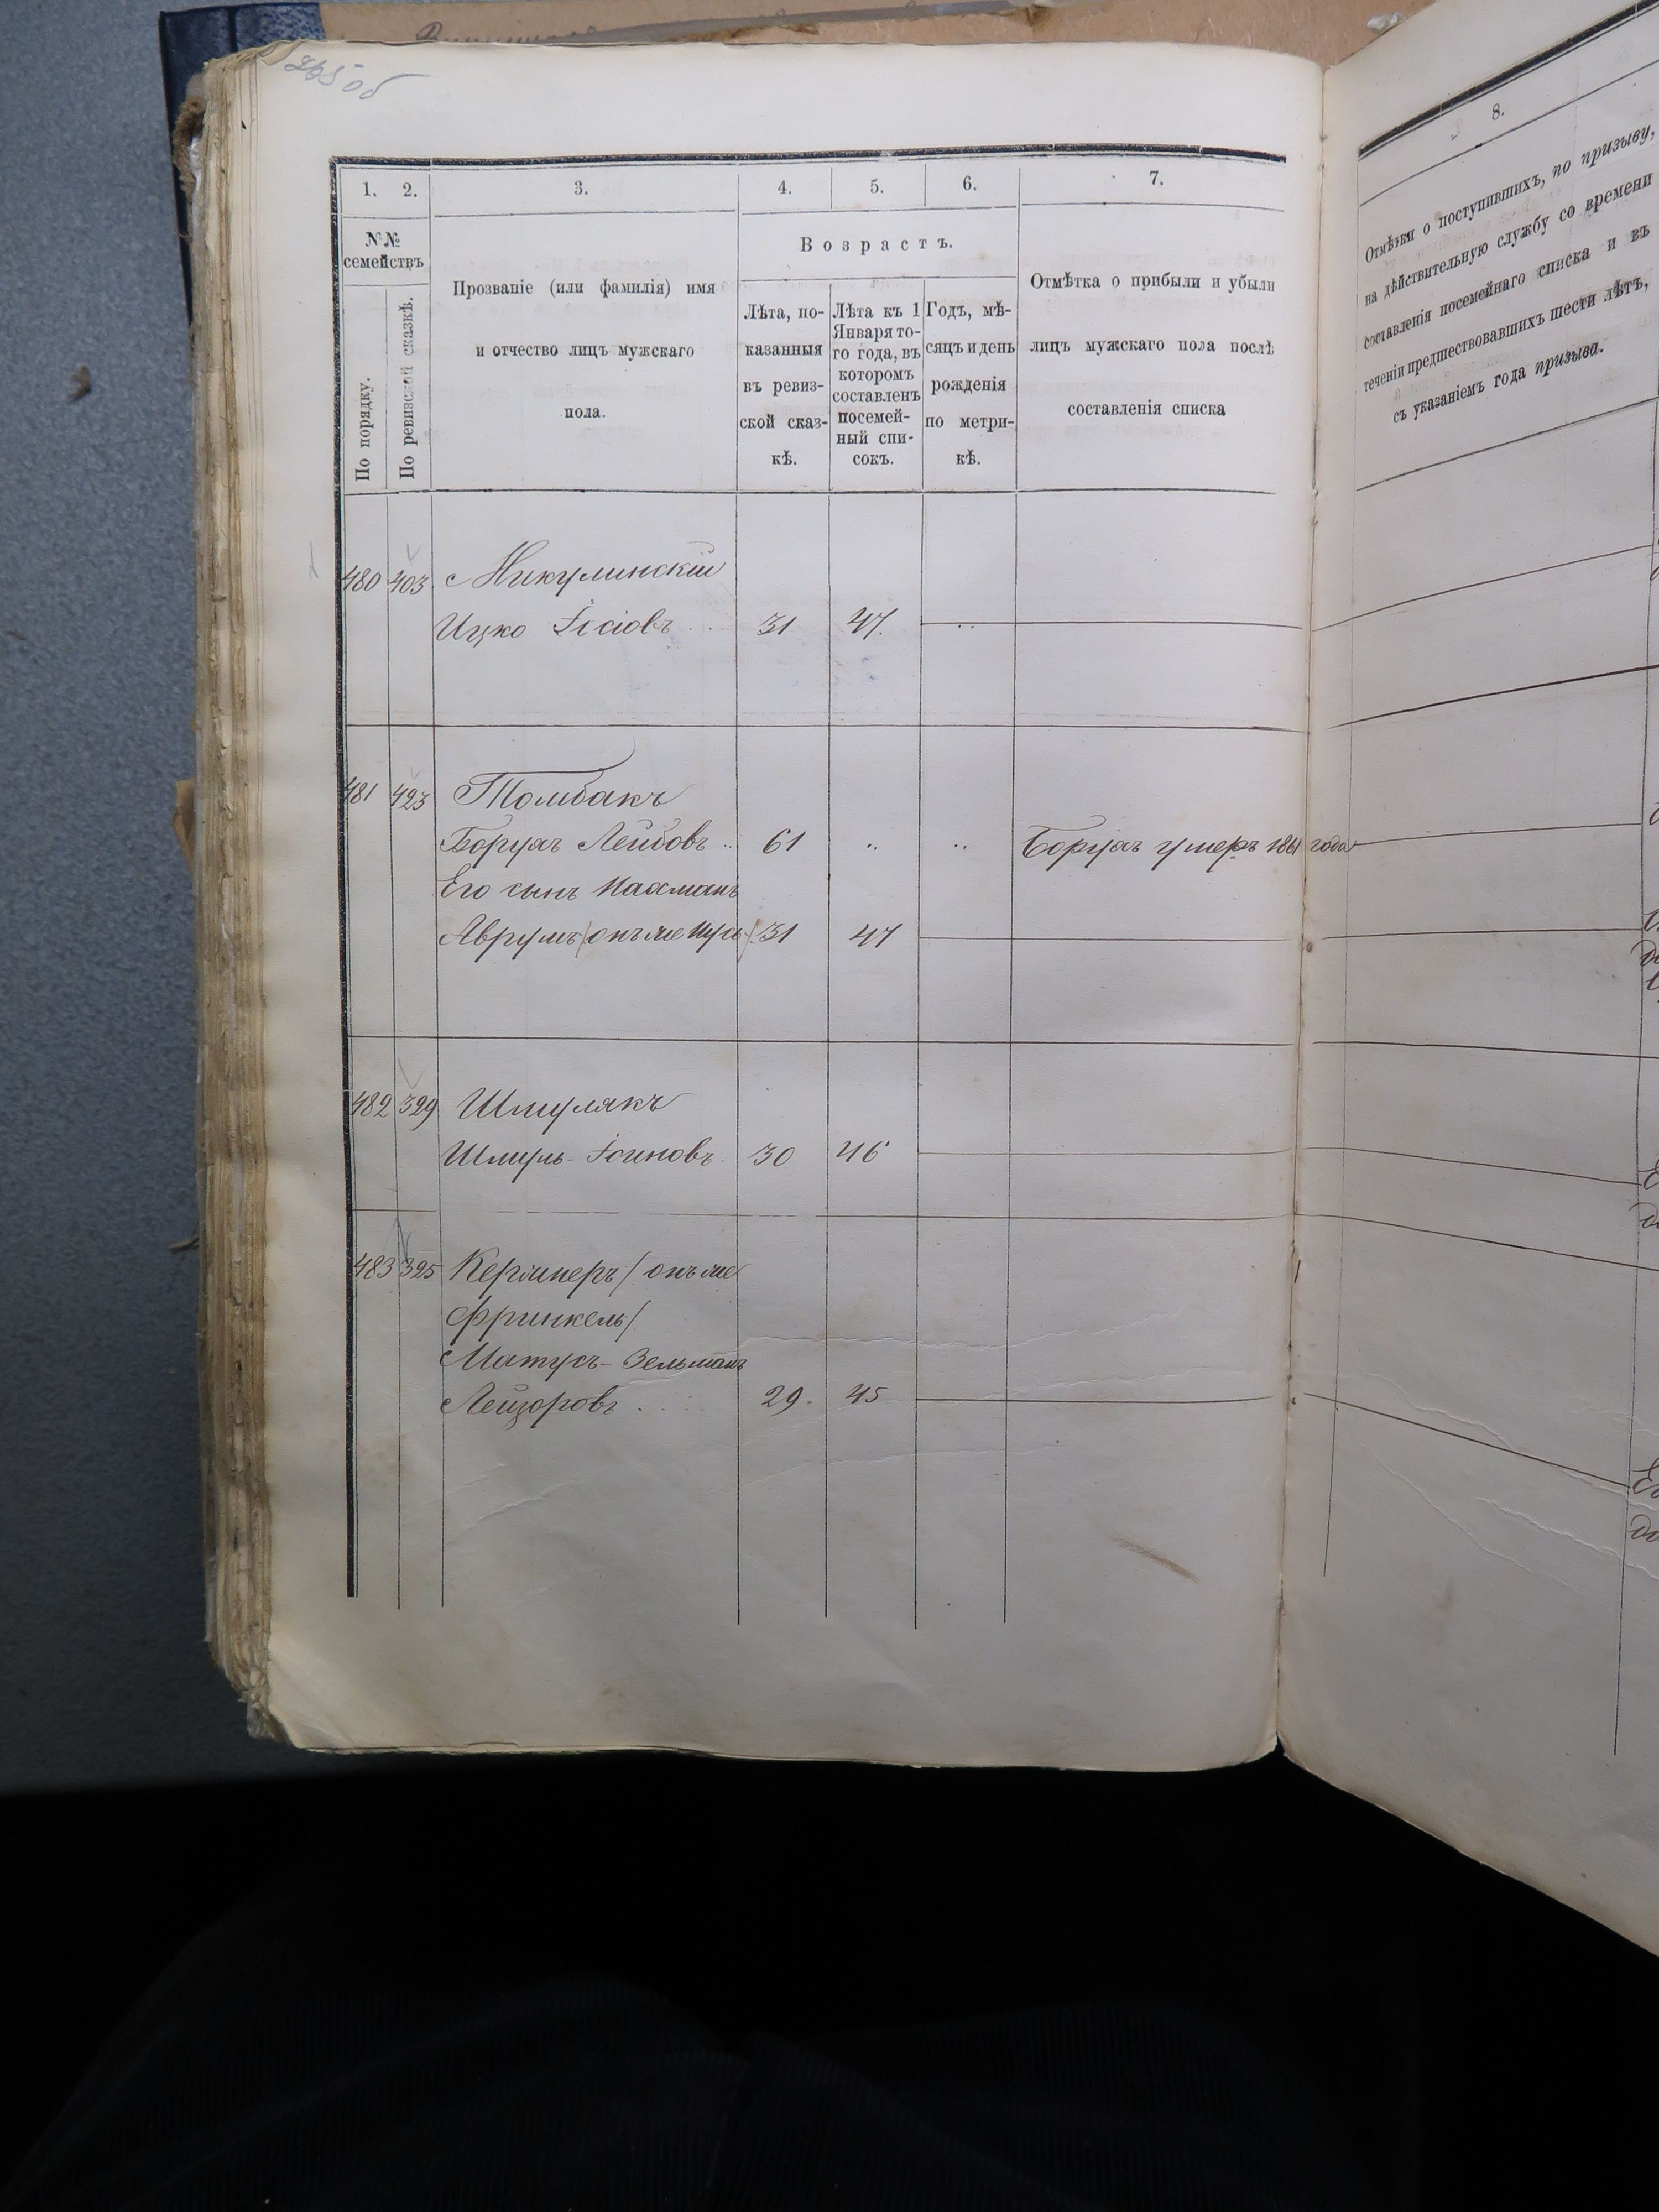 265 об
1. 2. 3. 4. 5. 6. 7.
№№
семействъ
По порядку.
По ревизской сказкѣ.
Прозваніе (или фамилія) имя
и отчество лицъ мужскаго
пола.
Возрастъ.
Лѣта, по-
казанныя
въ ревиз-
ской сказ-
кѣ.
Лѣта къ 1
Января то-
го года, въ
которомъ
составленъ
посемей-
ный спи-
сокъ.
Годъ, мѣ-
сяцъ и день
рожденія
по метри-
кѣ.
Отмѣтка о прибыли и убыли
лицъ мужскаго пола послѣ
составленія списка
480 403 Никулинскій
Ицко 31 47
481 423 Томбакъ
Борухъ Лейбовъ 61 Борухъ умеръ 1861 года
Его сынъ Нахманъ
Аврумъ (онъ же Нусь) 31 47
482 329 Шмулякъ
Шмуль 30 46
483 325 Керлинеръ / онъ же
Фринкель /
Матусъ-Зельманъ
Лейзоровъ 29. 45
8.
Отмѣтки о поступившихъ, по призыву,
на дѣйствительную службу со времени
составленія посемейнаго списка и въ
теченіи предшествовавшихъ шести лѣтъ,
съ указаніемъ года призыва.